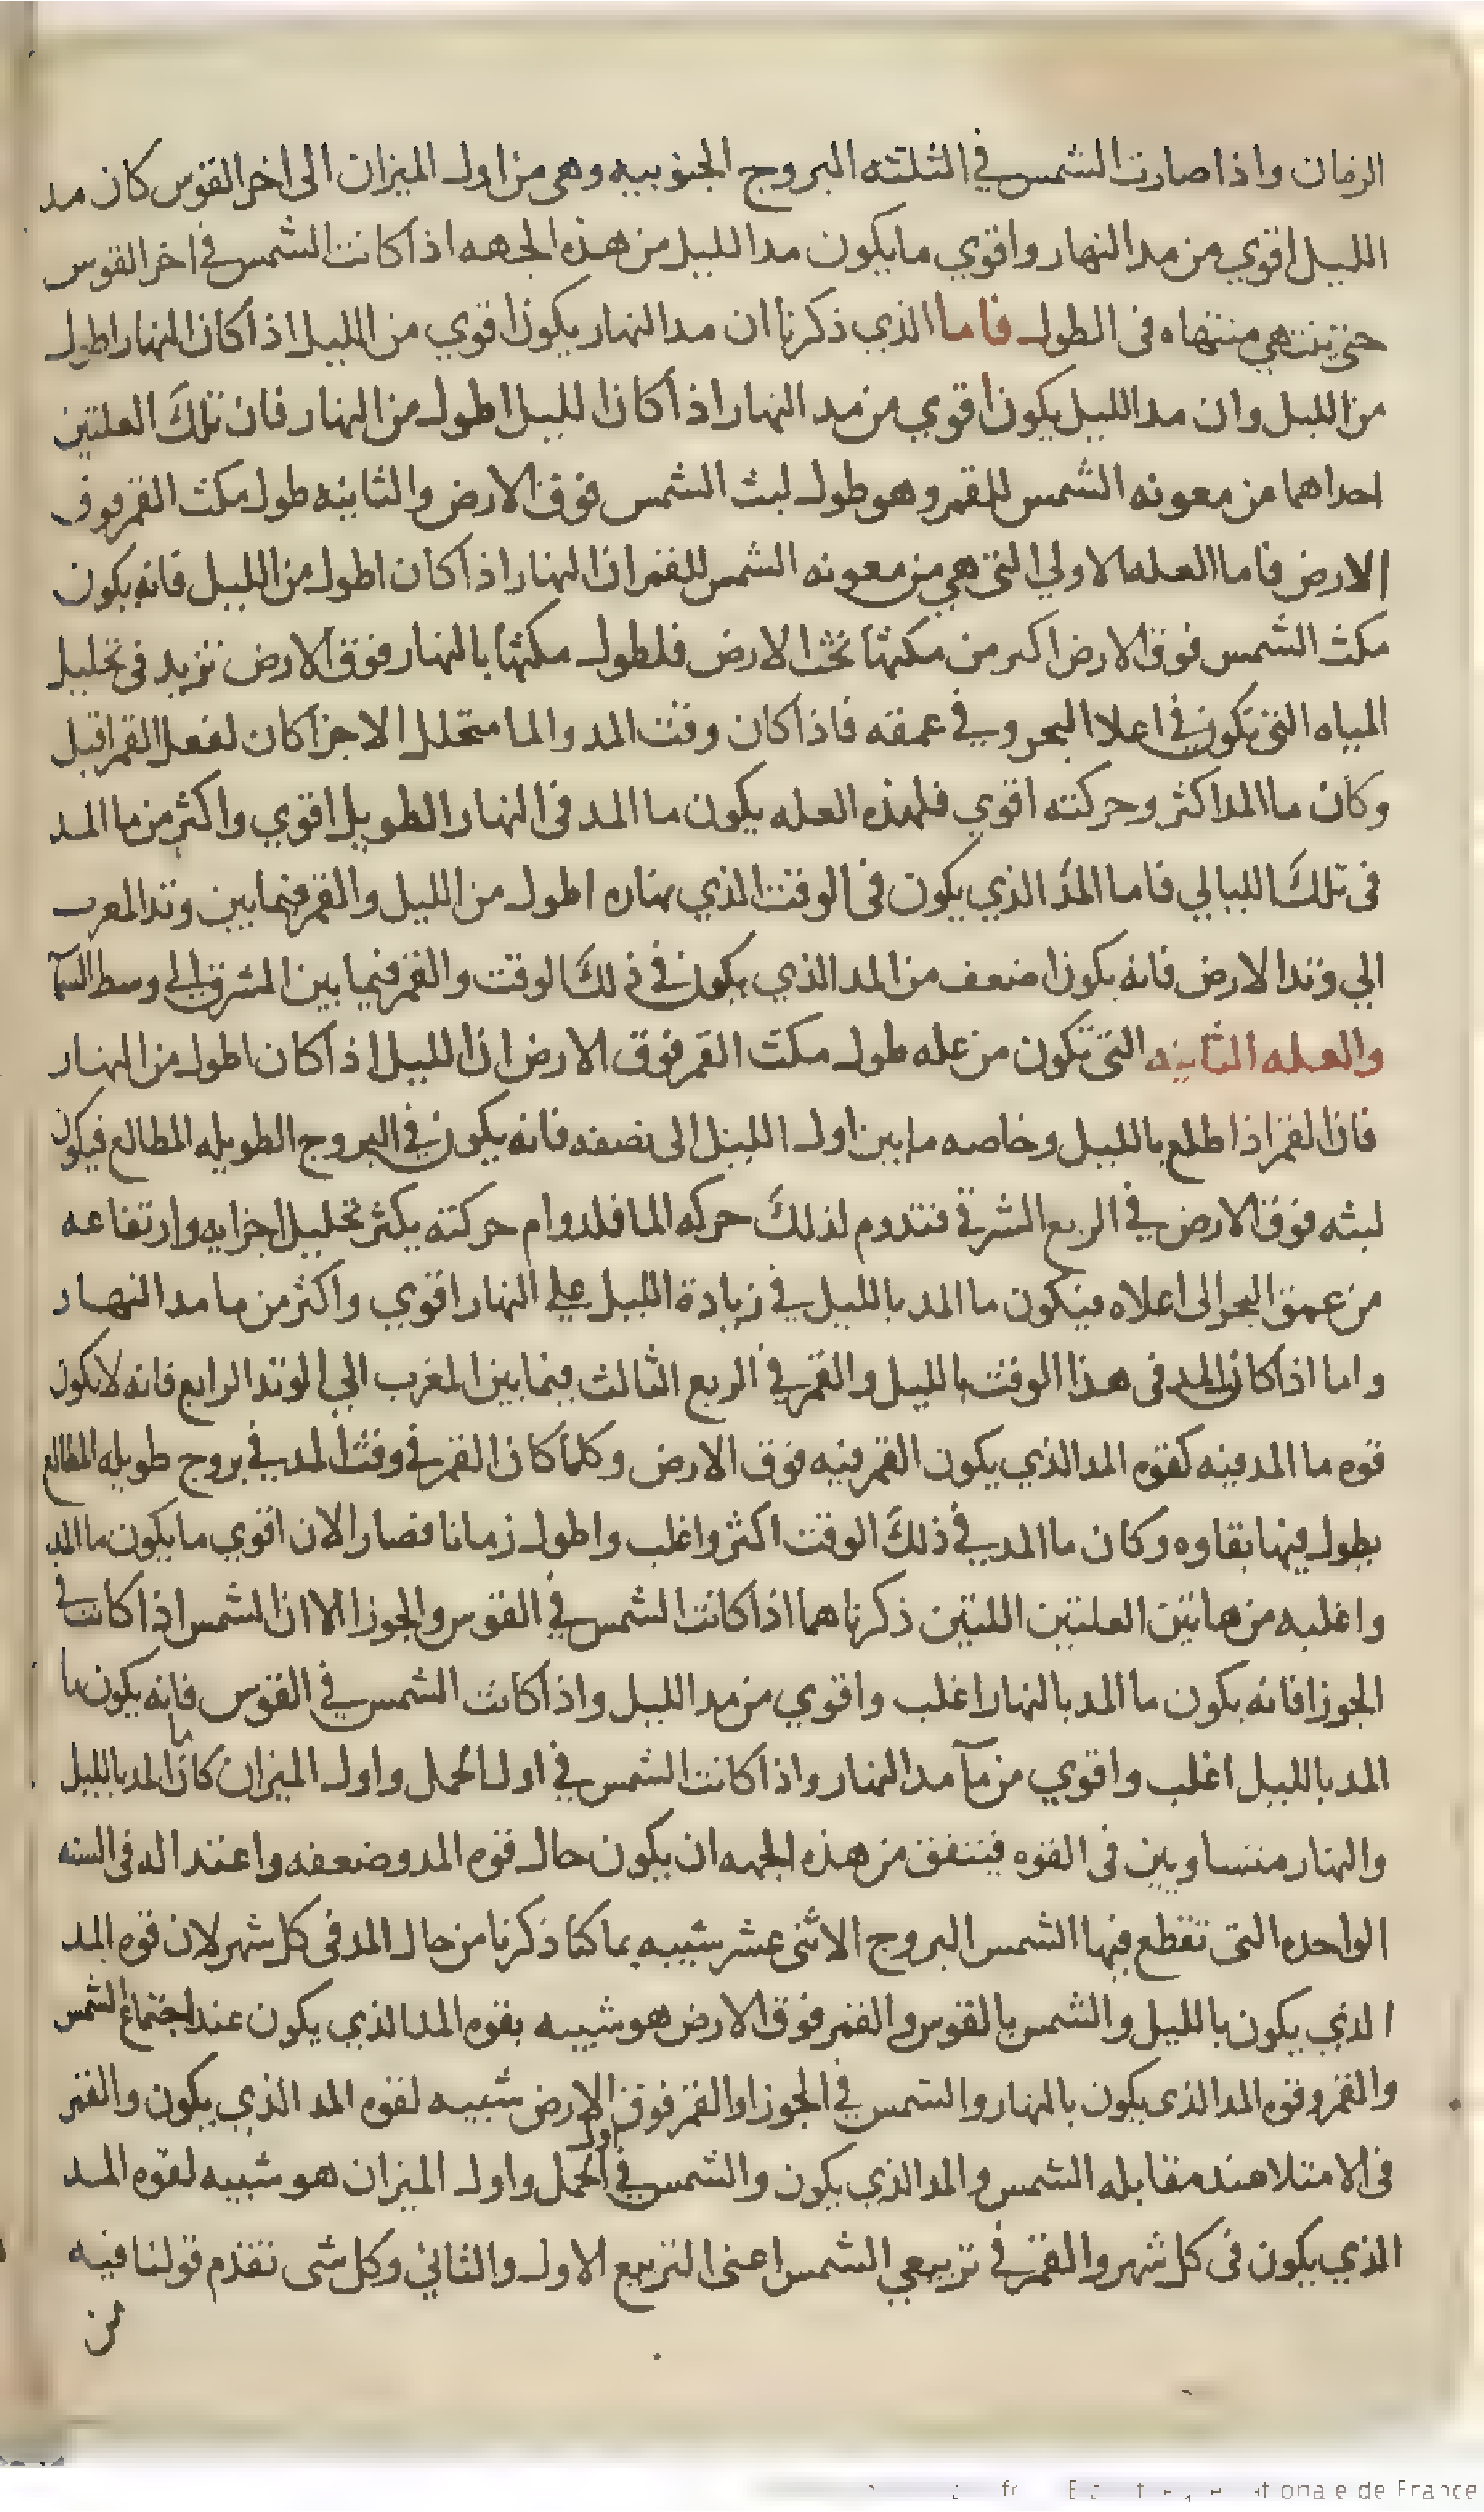 الزمان واذا صارت الشمس في الثلثه البروج الجنوبيه وهي من اول الميزان الى اخر القوس كان مد
الليل اقوي من مد النهار واقوي ما يكون مد الليل من هذه الجهه اذا كانت الشمس في اخر القوس
حتي ينتهي منتهاه في الطول فاما الذي ذكرنا ان مد النهار يكون اقوي من الليل اذا كان النهار اطول
من الليل وان مد الليل يكون اقوي من مد النهار اذا كان الليل اطول من النهار فان تلك العلتين
احداهما من معونه الشمس للقمر وهو طول لبث الشمس فوق الارض والثانيه طول مكث القمر فوق
الارض فاما العله الاولي التي هي من معونه الشمس للقمر ان النهار اذا كان اطول من الليل فانه يكون
مكث الشمس فوق الارض اكبر من مكثها تحت الارض فلطول مكثها بالنهار فوق الارض تزيد في تحليل
المياه التي تكون في اعلا البحر وفي عمقه فاذا كان وقت المد والما متحلل الاجزا كان لفعل القمر اقبل
وكان ما المد اكثر وحركته اقوي فلهذه العله يكون ما المد في النهار الطويل اقوي واكثر من ما المد
في تلك الليالي فاما المد الذي يكون في الوقت الذي نهاره اطول من الليل والقمر فيما بين وتد المغرب
الي وتد الارض فانه يكون اضعف من المد الذي يكون في ذلك الوقت والقمر فيما بين المشرق الى وسط السمآ
والعله الثانيه التي تكون من عله طول مكث القمر فوق الارض ان الليل اذا كان اطول من النهار
فان القمر اذا طلع بالليل وخاصه ما بين اول الليل الى نصفه فانه يكون في البروج الطويله المطالع فيكون
لبثه فوق الارض في الربع الشرقي فتدوم لذلك حركه الما فلدوام حركته يكثر تحليل اجزايه وارتفاعه
من عمق البحر الى اعلاه فيكون ما المد بالليل في زيادة الليل علي النهار اقوي واكثر من ما مد النهار
واما اذا كان المد في هذا الوقت بالليل والقمر في الربع الثالث فيما بين المغرب الي الوتد الرابع فانه لا يكون
قوه ما المد فيه كقوه المد الذي يكون القمر فيه فوق الارض وكلما كان القمر في وقت المد في بروج طويله المطالع
يطول فيها بقاوه وكان ما المد في ذلك الوقت اكثر واغلب واطول زمانا فصار الان اقوي ما يكون ما المد
واغلبه من هاتين العلتين اللتين ذكرناهما اذا كانت الشمس في القوس والجوزا الا ان الشمس اذا كانت في
الجوزا فانه يكون ما المد بالنهار اغلب واقوي من مد الليل واذا كانت الشمس في القوس فانه يكون ما
المد بالليل اغلب واقوي من مآ مد النهار واذا كانت الشمس في اول الحمل واول الميزان كان ما المد بالليل
والنهار متساويين في القوه فيتفق من هذه الجهه ان يكون حال قوه المد وضعفه واعتداله في السنه
الواحده التي تقطع فيها الشمس البروج الاثني عشر شبيه بما كنا ذكرنا من حال المد في كل شهر لان قوه المد
الذي يكون بالليل والشمس بالقوس والقمر فوق الارض هو شبيه بقوه المد الذي يكون عند اجتماع الشمس
والقمر وقوه المد الذي يكون بالنهار والشمس في الجوزا والقمر فوق الارض شبيه لقوه المد الذي يكون والقمر
في الامتلا عند مقابله الشمس والمد الذي يكون والشمس في اول الحمل واول الميزان هو شبيه لقوه المد
الذي يكون في كل شهر والقمر في تربيعي الشمس اعني التربيع الاول والثاني وكل شي تقدم قولنا فيه
من